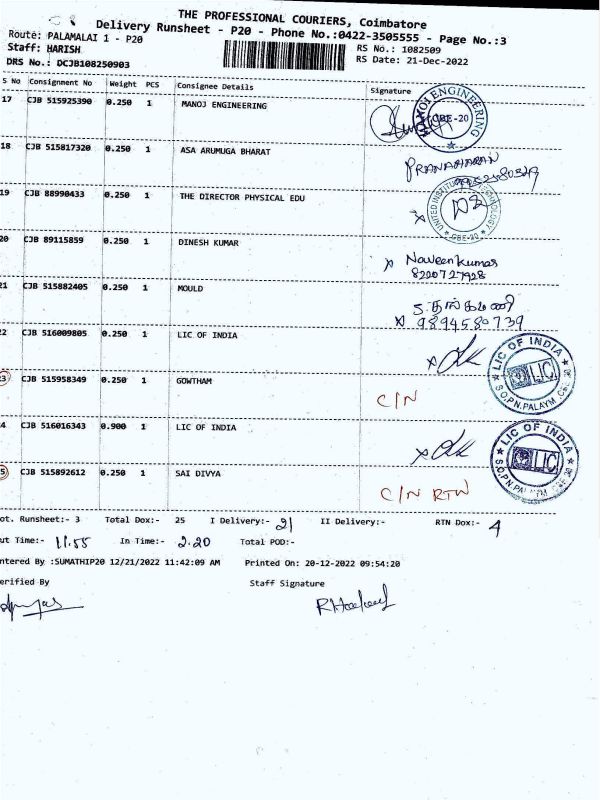 THE PROFESSIONAL COURIERS, Coimbatore
Delivery Runsheet - P20 - Phone No.:0422-3505555 - Page No.:3
Route: PALAMALAI 1 - P20
RS No.: 1082509
Staff: HARISH
RS Date: 21-Dec-2022
DRS No.: DCJB108250903
S No Consignment No Weight PCS Consignee Details Signature
17 CJB 515925390 0.250 1 MANOJ ENGINEERING
MANOJ ENGINEERING CBE-20
18 CJB 515817320 0.250 1 ASA ARUMUGA BHARAT
PRANAHARAN
19 CJB 88990433 0.250 1 THE DIRECTOR PHYSICAL EDU
UNITED INSTITUTE TECHNOLOGY CBE-20
20 CJB 89115859 0.250 1 DINESH KUMAR
Naveenkumar
8220727928
21 CJB 515882405 0.250 1 MOULD
S. தங்கமணி
9894580739
22 CJB 516009805 0.250 1 LIC OF INDIA
LIC OF INDIA LIC S.O.P.N.PALAYM CBE 20
23 CJB 515958349 0.250 1 GOWTHAM C/N
24 CJB 516016343 0.900 1 LIC OF INDIA
LIC OF INDIA LIC S.O.P.N PALAYM CBE 20
25 CJB 515892612 0.250 1 SAI DIVYA C/N RTN
ot. Runsheet:- 3 Total Dox:- 25 I Delivery:- 21 II Delivery:- RTN Dox:- 4
ut Time:- 11.55 In Time:- 2.20 Total POD:-
ntered By :SUMATHIP20 12/21/2022 11:42:09 AM Printed On: 20-12-2022 09:54:20
erified By Staff Signature